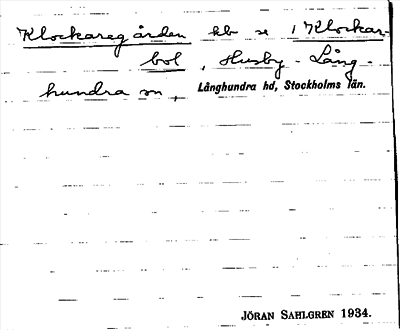 Klockaregården kb se 1 Klockar-
bol, Husby-Lång-
hundra sn, Långhundra hd, Stockholms län.
JÖRAN SAHLGREN 1934.